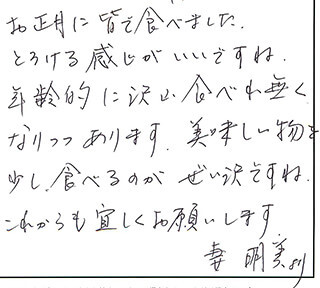 お正月に皆で食べました.
とろける感じがいいですね.
年齢的に沢山食べれ無く
なりつつあります. 美味しい物を
少し、食べるのが ぜい沢ですね.
これからも宜しくお願いします
妻 明美より